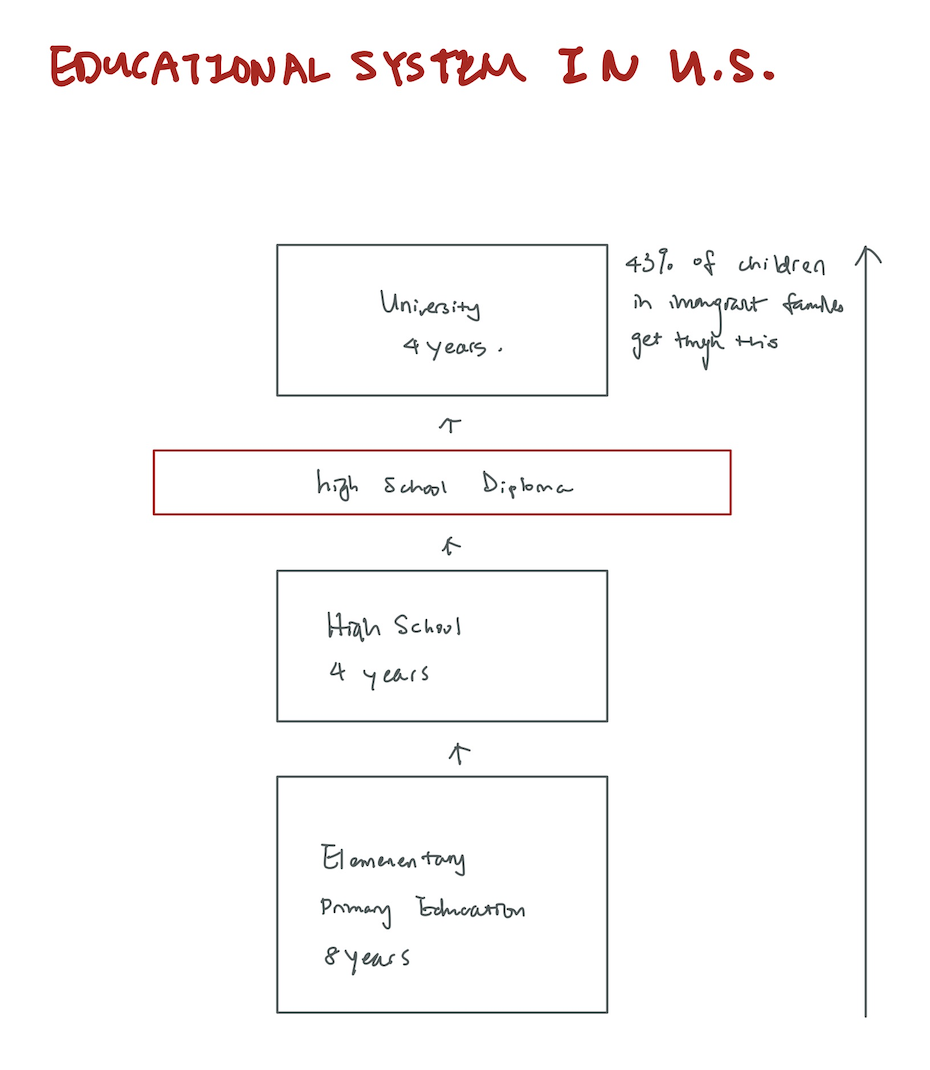 EDUCATIONAL SYSTEM IN U.S.
University
4 years.
43% of children
in immgrant families
get thrgh this
high School Diploma
High School
4 years
Elemenentary
Primary Education
8 years